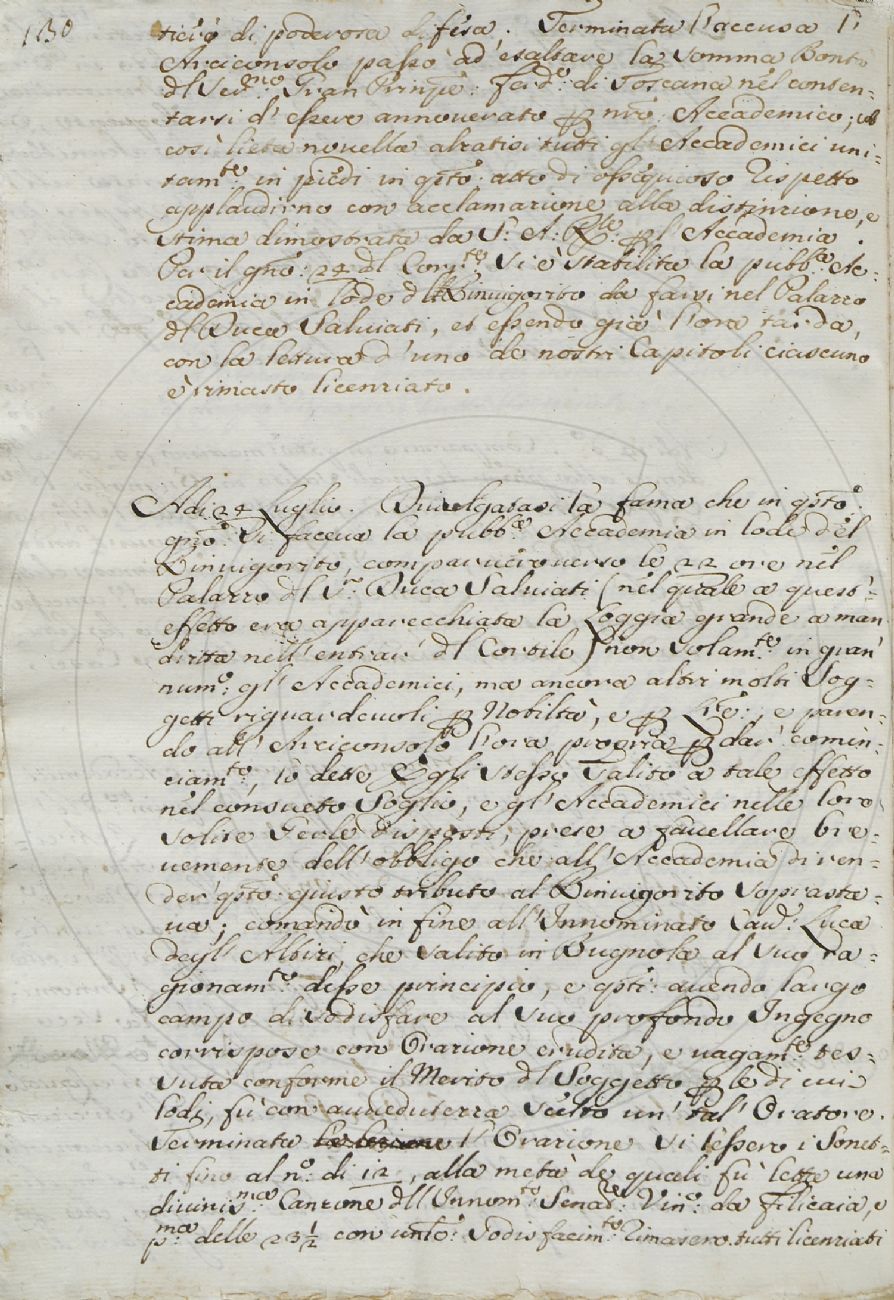 130
tierò di poderosa difesa. Terminata l'accusa l'
Arciconsolo passò ad' esaltare la somma Bontà
dl Ser.mo Gran Prnpē: Ferd.o: di Toscana nel conten-
tarsi d' essere annoverato p nrō: Accademico;
così lieta novella alzatisi tutti gl' Accademici uni-
tam.te in piedi in qsto: atto di ossequioso Rispetto
applaudirno con acclamazione alla distinzione, e
stima dimostrata da S: A: R.le: p l' Accademia.
Per il gno: 24 dl Corr.te si è stabilita la pubb.ca Ac-
cademia in lode dl Rinvigorito da farsi nel Palazzo
dl Duca Salviati, et essendo già l'ora tarda,
con la lettura d' uno de nostri Capitoli ciascuno
è rimasto licenziato.
Adi 24 Luglio. Divulgatasi la fama che in qsto:
gno: si faceva la pubb.ca Accademia in lode del
Rinvigorito, comparvero verso le 22 ore nel
Palazzo dl S.r Duca Salviati (nel quale a quest'
effetto era apparecchiata la Loggia grande a man
diritta nell' entrar' dl Cortile) non solam.te in gran'
num.o: gl' Accademici, ma ancora altri molti Sog-
getti riguardevoli p Nobiltà, e p Lrē:, e paren-
do all' Arciconsolo l'ora propria p dar' comin-
ciam.to, lo dette Egli stesso, salito a tale effetto
nel consueto Soglio, e gl' Accademici nelle loro
solite Gerle disposti, prese a favellare bre-
vemente dell' obbligo che all' Accademia di ren-
der' qsto: giusto tributo al Rinvigorito soprasta-
va; comandò in fine all' Innominato Cav.r: Luca
degl' Albizi, che salito in Bugnola al suo ra-
gionam.to desse principio, e qsti: avendo largo
campo di sodisfare al suo profondo Ingegno
corrispose con Orazione erudita, e vagam.te tes-
suta conforme il Merito dl Soggetto p le di cui
lodi, fù con avvedutezza scelto un' tal' Oratore.
Terminata l' Orazione si lessero i Sonet-
ti fino al n.o: di 12, alla metà de quali fù letta una
divinis.ma Canzone dll' Innom.to Senat.re: Vinc.o: da Filicaia, e
p.ma delle 23 1/2 con untō: sodisfacim.to Rimasero tutti licenziati